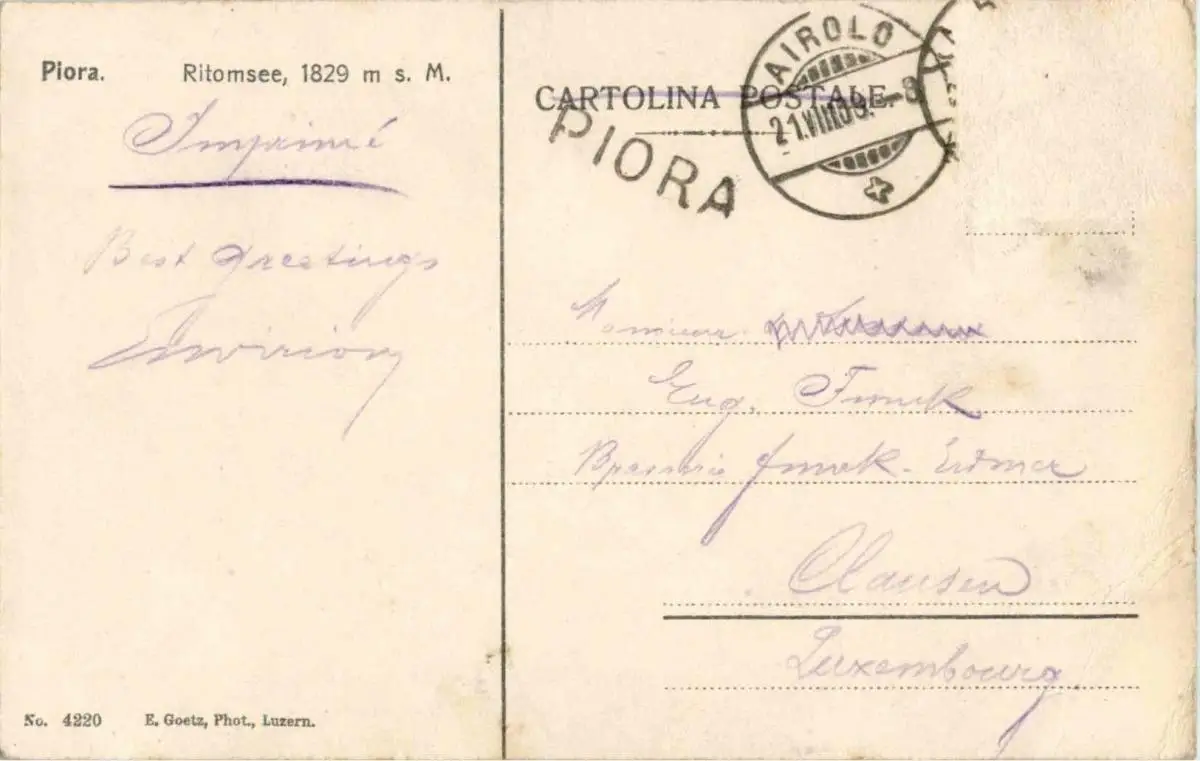 Piora. Ritomsee, 1829 m s. M.
Imprimé
Best greetings
CARTOLINA POSTALE.
PIORA
AIROLO
21.VIII.09.-8
Monsieur
Eug. Funck
Brasserie Funck-Eidmer
Clausen
Luxembourg.
No. 4220 E. Goetz, Phot., Luzern.